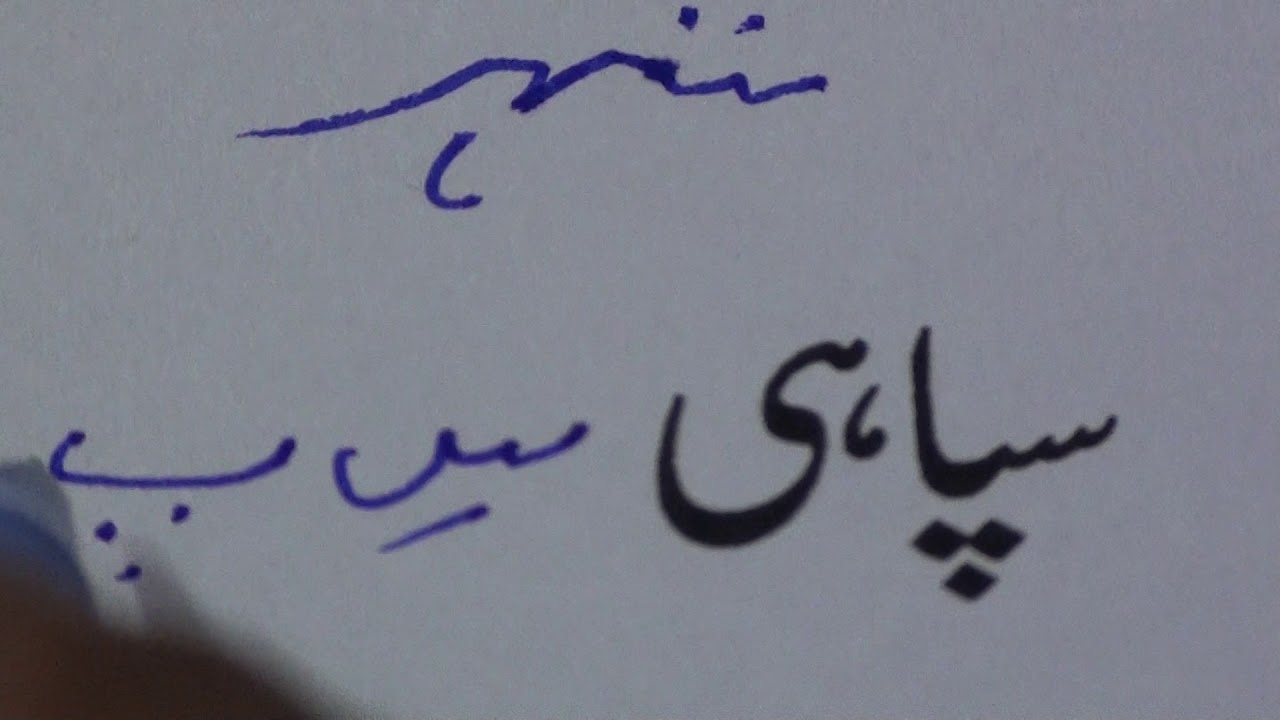 شہر
سپاہی سِ پ